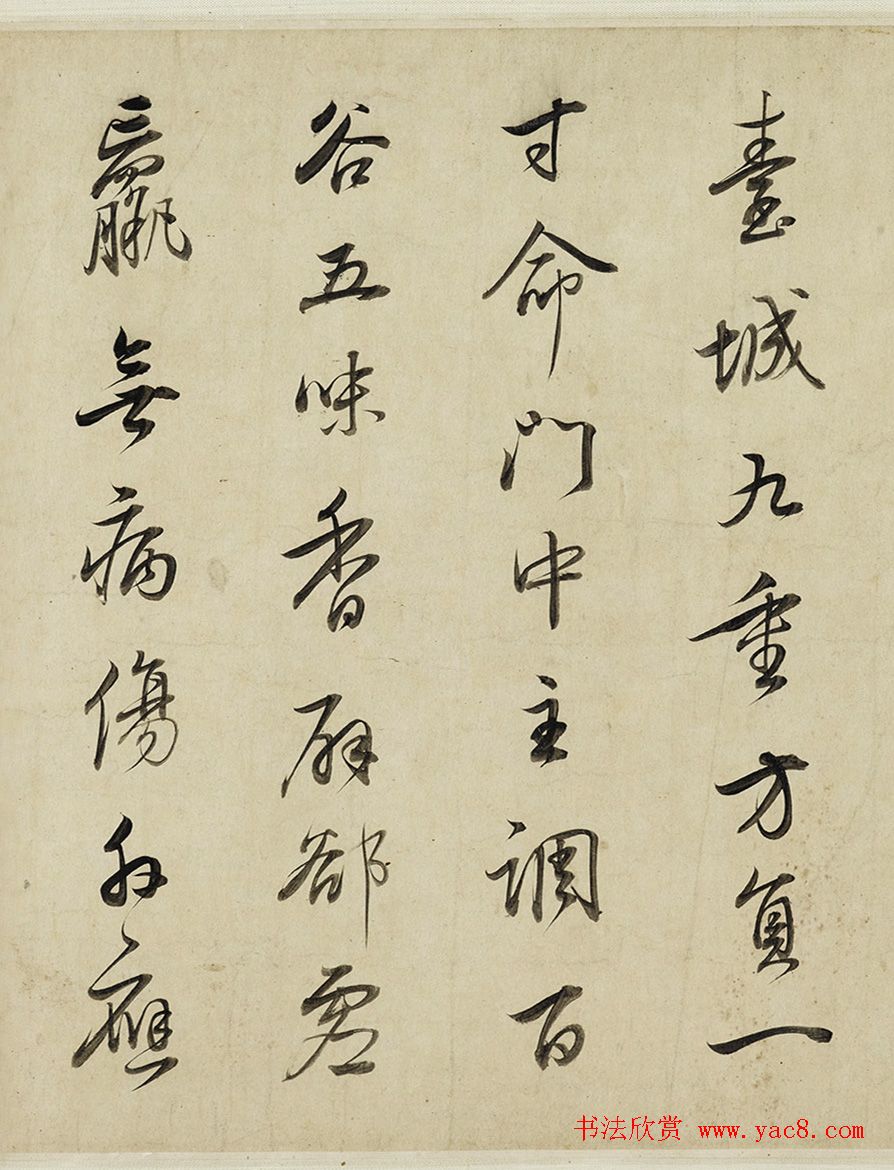 臺城九重方員一
寸命門中主調百
谷五味香辟郤虛
羸無病傷外應
书法欣赏 www.yac8.com